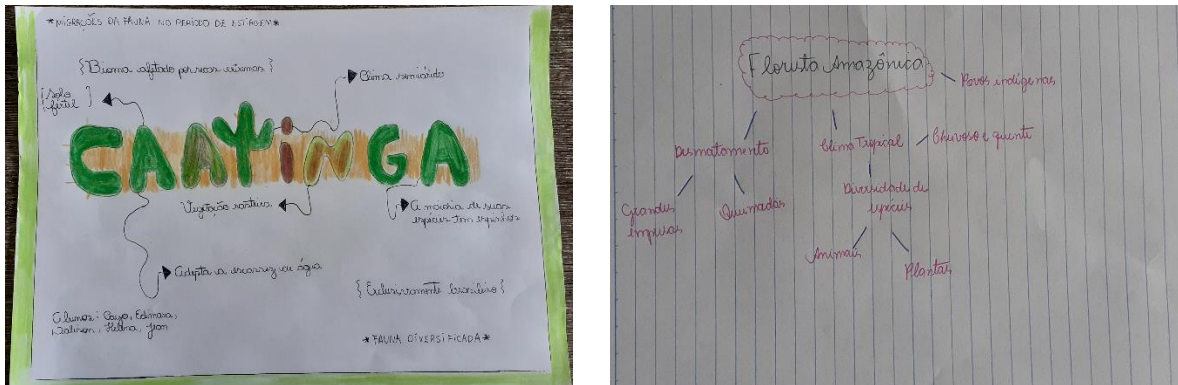 *MIGRAÇÕES DA FAUNA NO PERÍODO DE ESTIAGEM*
{Bioma afetado por secas extremas}
Clima semiárido
[Solo
fértil]
CAATINGA
Vegetação rasteira
A maioria de suas
espécies tem espinhos
Adapta a escassez de água
{Exclusivamente brasileiro}
Alunos: Cayo, Edimara,
Helena, Jean
*FAUNA DIVERSIFICADA*
Floresta Amazônica
Povos indígenas
Desmatamento
Clima Tropical
Chuvoso e quente
Grandes
empresas
Queimadas
Diversidade de
espécies
Animais
Plantas